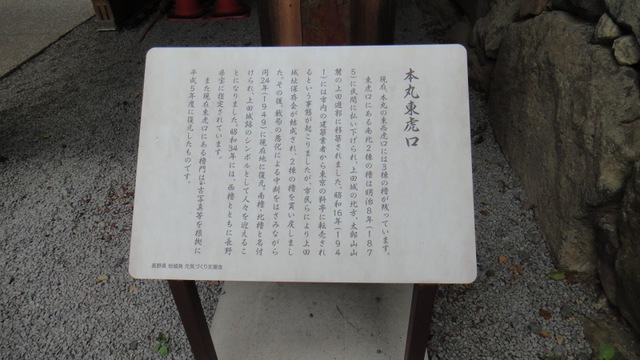 本丸東虎口
現在、本丸の東西虎口には3棟の櫓が残っています。
東虎口にある南北2棟の櫓は明治8年(187
5)に民間に払い下げられ、上田城の北方、太郎山山
麓の上田遊郭に移築されました。昭和16年(194
1)には市内の建築業者から東京の料亭に転売され
るという事態が起こりましたが、市民らにより上田
城址保存会が結成され、2棟の櫓を買い戻しまし
た。その後、戦局の悪化による中断をはさみながら
同24年(1949)に現在地に復元、南櫓・北櫓と名付
けられ、上田城跡のシンボルとして人々を迎えるこ
とになりました。昭和34年には、西櫓とともに長野
県宝に指定されています。
また現在東虎口にある櫓門は、古写真等を根拠に
平成5年度に復元したものです。
長野県 地域発 元気づくり支援金